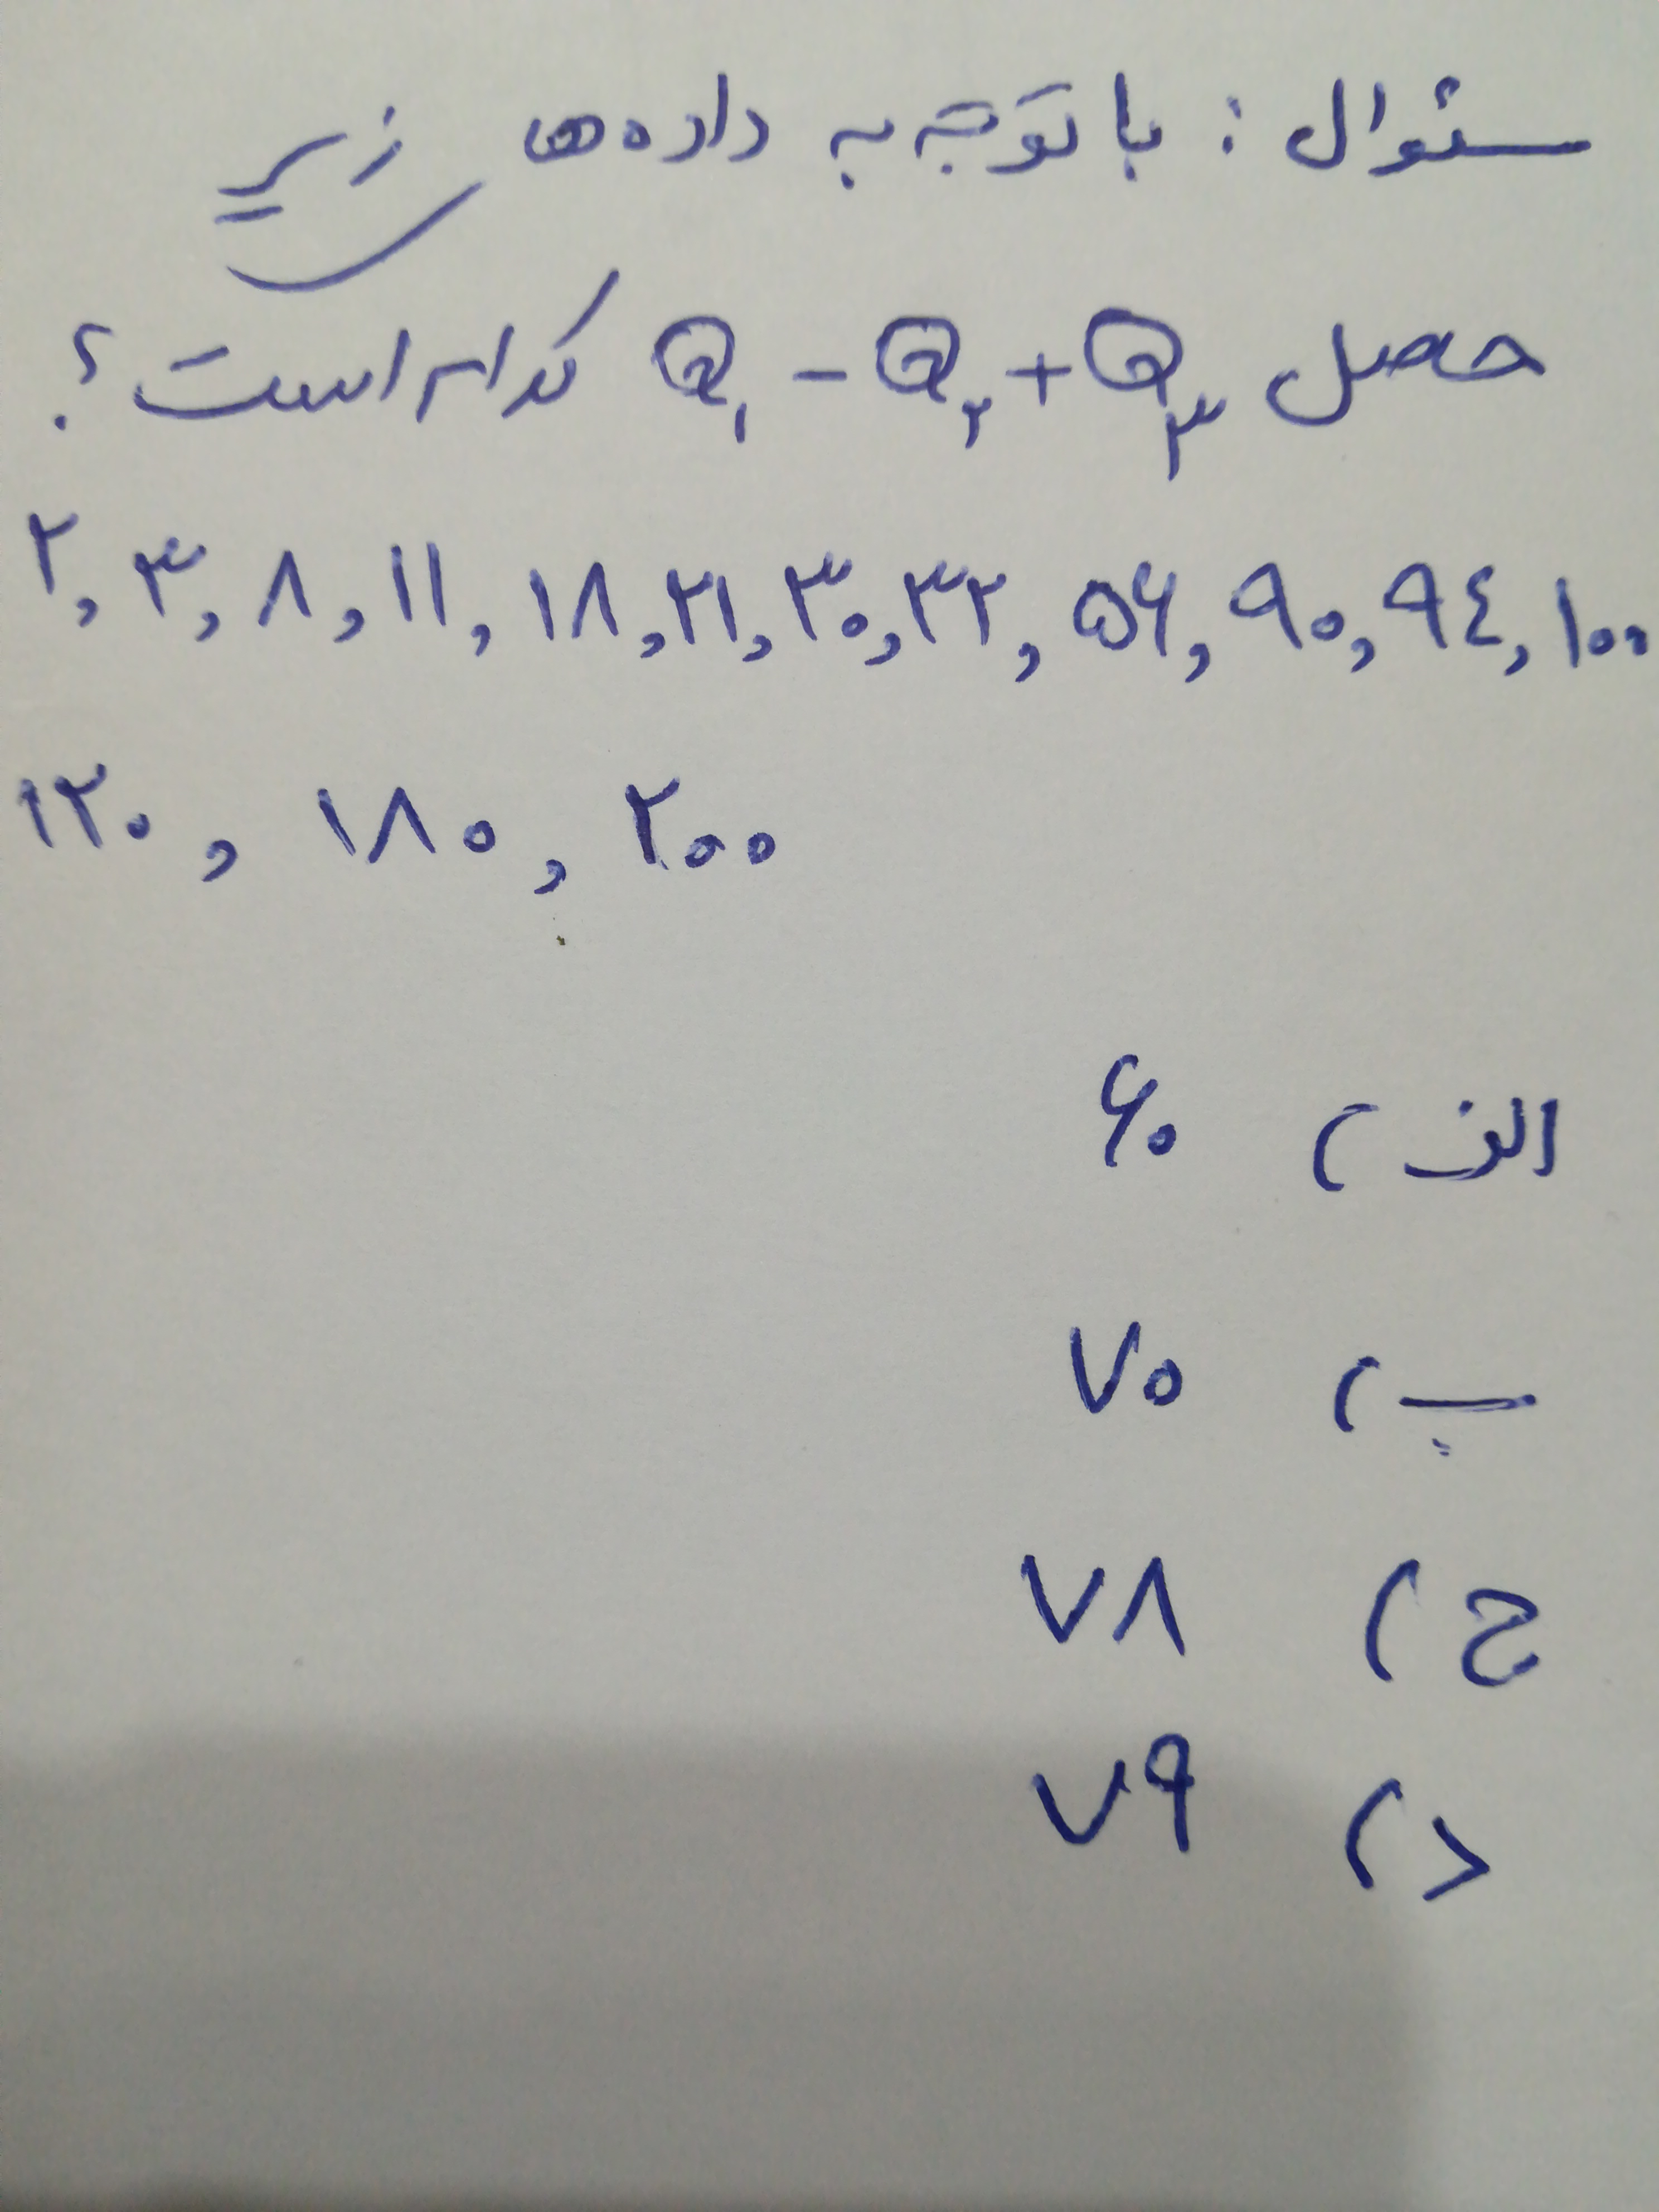 سئوال : با توجه به داده ها زیر
حاصل Q₁ - Q₂ + Q₃ کدام است ؟
۲ , ۳ , ۸ , ۱۱ , ۱۸ , ۲۱ , ۳۰ , ۳۲ , ۵۶ , ۹۰ , ۹٤ , ۱۰۰
۱۲۰ , ۱۸۰ , ۲۰۰
الف ) ۶۰
ب ) ۷۰
ج ) ۷۸
د ) ۷۹